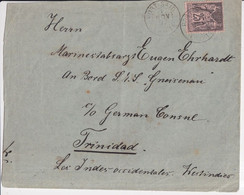 Herrn
Marinestabsarzt Eugen Ehrhardt
An Bord S.M.S. Gneisenau
c/o German Consul
Trinidad
Les Indes occidentales Westindien